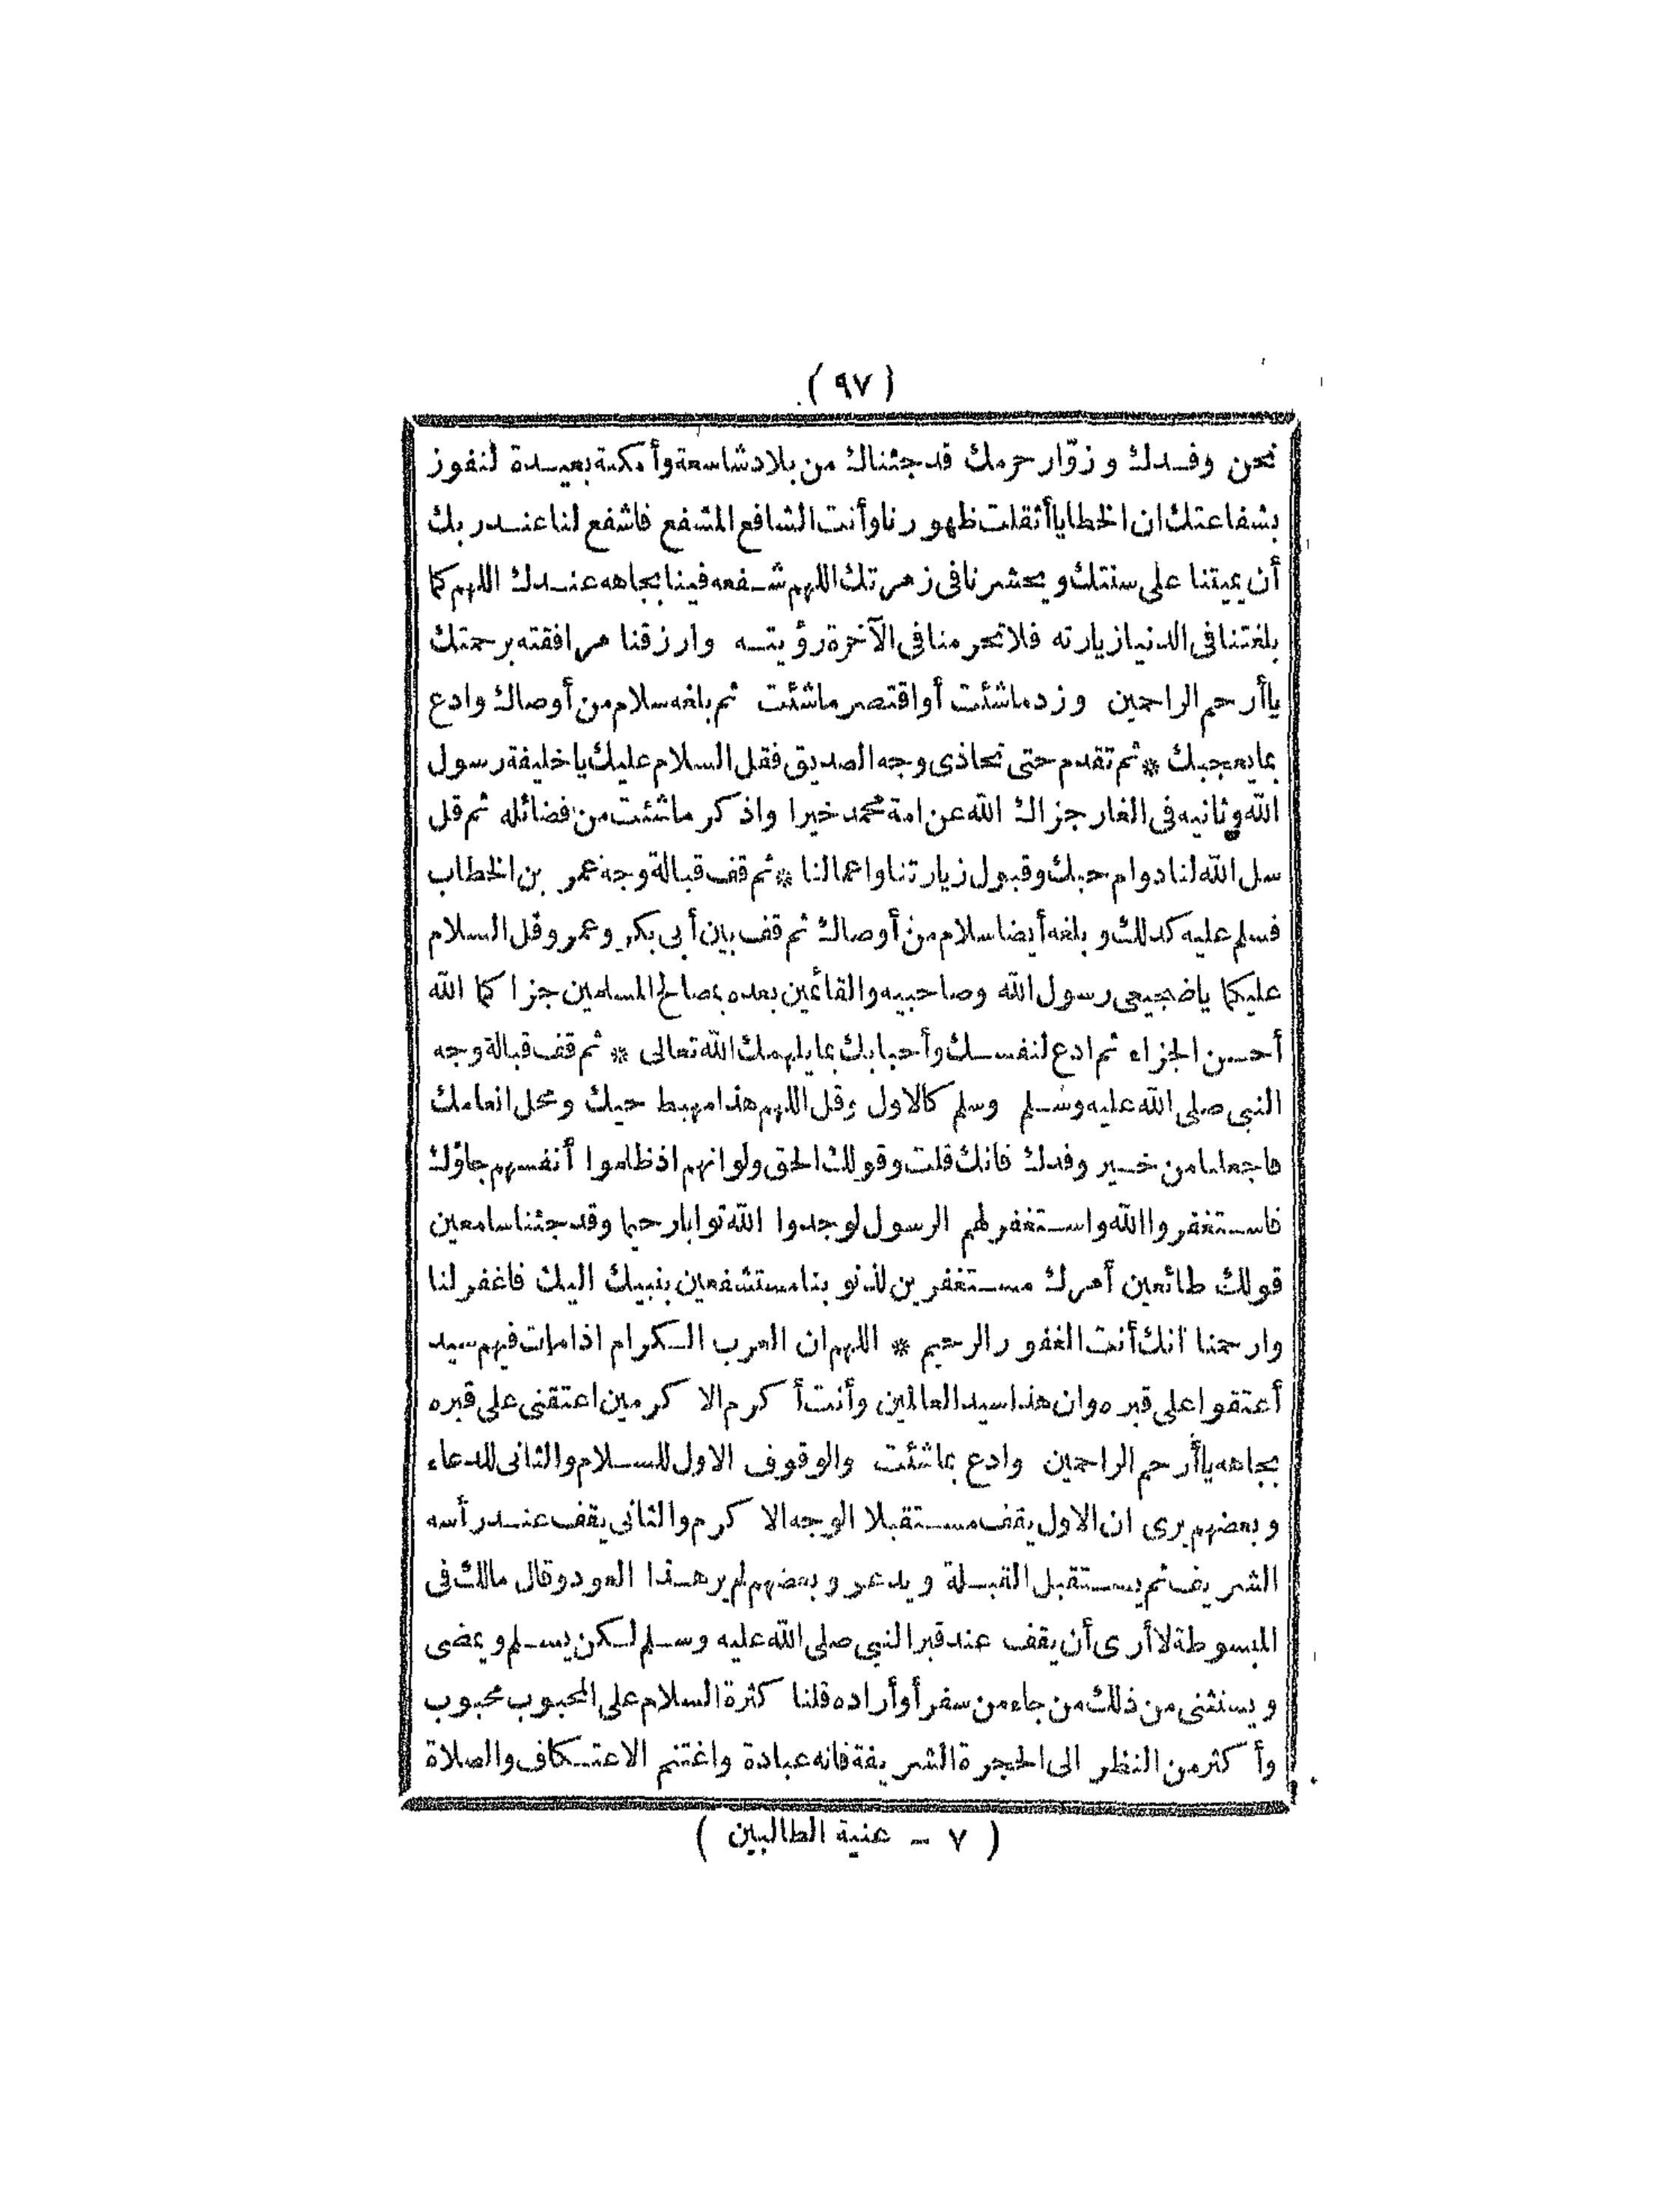 (٩٧)
نحن وفدك وزوّار حرمك قد جئناك من بلاد شاسعة وأمكنة بعيدة لنفوز
بشفاعتك ان الخطايا أثقلت ظهورنا وأنت الشافع المشفع فاشفع لنا عند ربك
أن يميتنا على سنتك ويحشرنا فى زمرتك اللهم شفعه فينا بجاهه عندك اللهم كما
بلغتنا فى الدنيا زيارته فلا تحرمنا فى الآخرة رؤيته وارزقنا مرافقته برحمتك
ياأرحم الراحمين وزد ماشئت أواقتصر ماشئت ثم بلغه سلام من أوصاك وادع
بما يعجبك * ثم تقدم حتى تحاذى وجه الصديق فقل السلام عليك ياخليفة رسول
الله وثانيه فى الغار جزاك الله عن امة محمد خيرا واذكر ماشئت من فضائله ثم قل
سل الله لنا دوام حبك وقبول زيارتنا واعمالنا * ثم قف قبالة وجه عمر بن الخطاب
فسلم عليه كذلك وبلغه أيضا سلام من أوصاك ثم قف بين أبى بكر وعمر وقل السلام
عليكما ياضجيعى رسول الله وصاحبيه والقائمين بعده بمصالح المسلمين جزاكما الله
أحسن الجزاء ثم ادع لنفسك وأحبابك بما يلهمك الله تعالى * ثم قف قبالة وجه
النبى صلى الله عليه وسلم وسلم كالاول وقل اللهم هذا مهبط حيك ومحل انعامك
فاجعلنا من خير وفدك فانك قلت وقولك الحق ولو انهم اذ ظلموا أنفسهم جاؤك
فاستغفروا الله واستغفر لهم الرسول لوجدوا الله توابا رحيما وقد جئنا سامعين
قولك طائعين أمرك مستغفرين لذنوبنا مستشفعين بنبيك اليك فاغفر لنا
وارحمنا انك أنت الغفور الرحيم * اللهم ان العرب الكرام اذا مات فيهم سيد
أعتقوا على قبره وان هذا سيد العالمين وأنت أكرم الاكرمين اعتقنى على قبره
بجاهه ياأرحم الراحمين وادع بماشئت والوقوف الاول للسلام والثانى للدعاء
وبعضهم يرى ان الاول يقف مستقبلا الوجه الاكرم والثانى يقف عند رأسه
الشريف ثم يستقبل القبلة ويدعو وبعضهم لم ير هذا العود وقال مالك فى
المبسوطة لاأرى أن يقف عند قبر النبى صلى الله عليه وسلم لكن يسلم ويمضى
ويستثنى من ذلك من جاء من سفر أوأراده قلنا كثرة السلام على المحبوب محبوب
وأكثر من النظر الى الحجرة الشريفة فانه عبادة واغتنم الاعتكاف والصلاة
(٧ - غنية الطالبين)